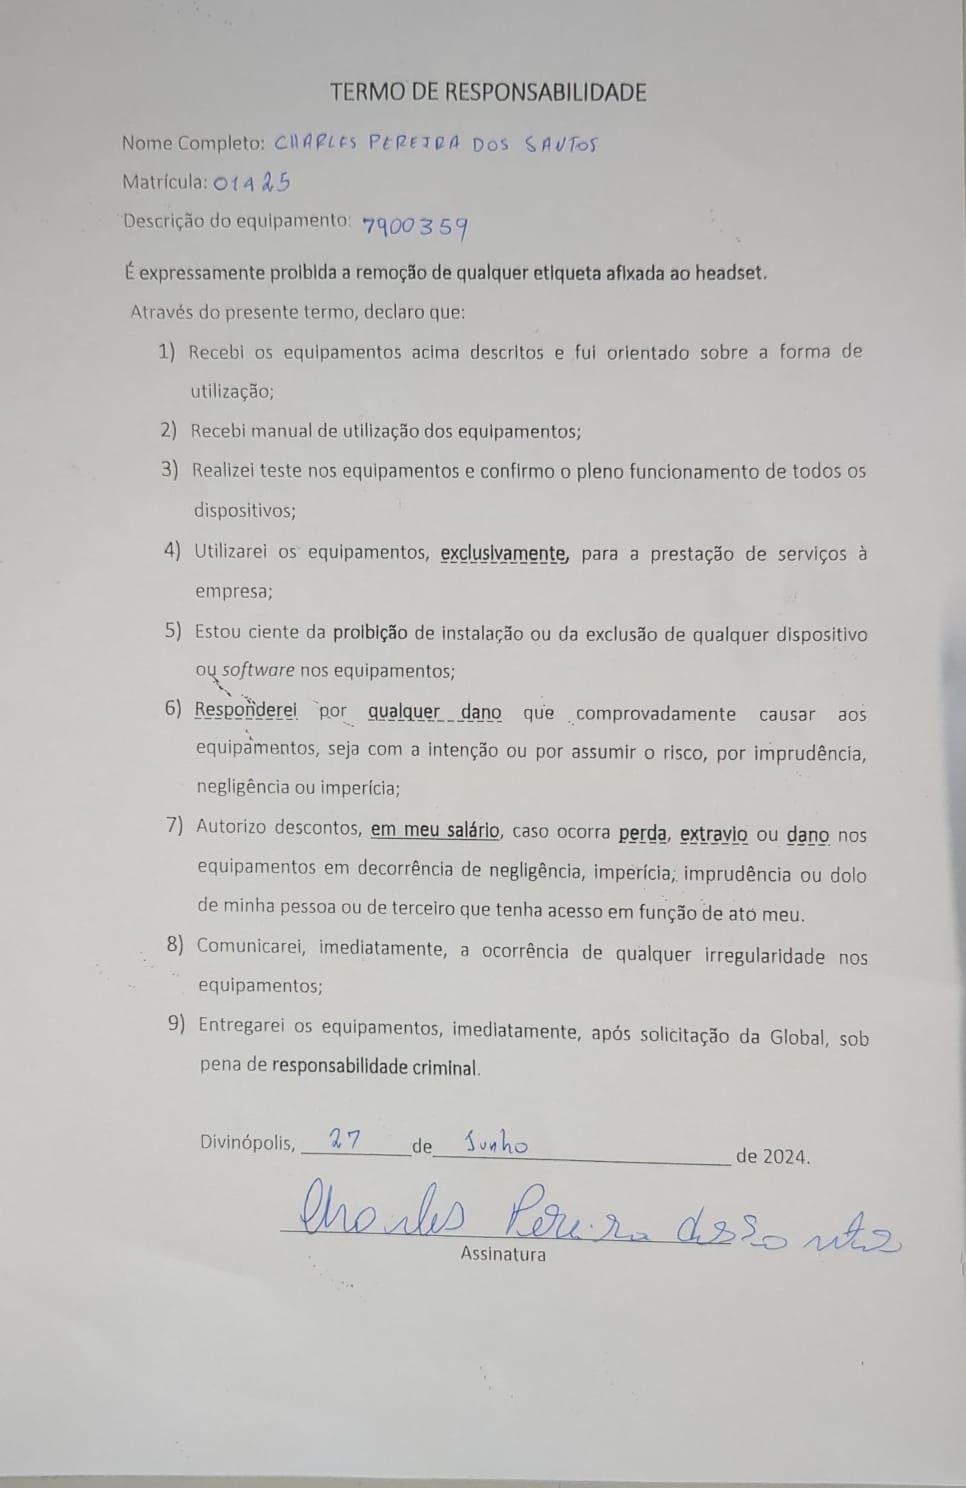 TERMO DE RESPONSABILIDADE
Nome Completo: CHARLES PEREIRA DOS SANTOS
Matrícula: 01A25
Descrição do equipamento: 7900359
É expressamente proibida a remoção de qualquer etiqueta afixada ao headset.
Através do presente termo, declaro que:
1) Recebi os equipamentos acima descritos e fui orientado sobre a forma de
utilização;
2) Recebi manual de utilização dos equipamentos;
3) Realizei teste nos equipamentos e confirmo o pleno funcionamento de todos os
dispositivos;
4) Utilizarei os equipamentos, exclusivamente, para a prestação de serviços à
empresa;
5) Estou ciente da proibição de instalação ou da exclusão de qualquer dispositivo
ou software nos equipamentos;
6) Responderei por qualquer dano que comprovadamente causar aos
equipamentos, seja com a intenção ou por assumir o risco, por imprudência,
negligência ou imperícia;
7) Autorizo descontos, em meu salário, caso ocorra perda, extravio ou dano nos
equipamentos em decorrência de negligência, imperícia, imprudência ou dolo
de minha pessoa ou de terceiro que tenha acesso em função de ato meu.
8) Comunicarei, imediatamente, a ocorrência de qualquer irregularidade nos
equipamentos;
9) Entregarei os equipamentos, imediatamente, após solicitação da Global, sob
pena de responsabilidade criminal.
Divinópolis, 27 de Junho de 2024.
Charles Pereira dos Santos
Assinatura